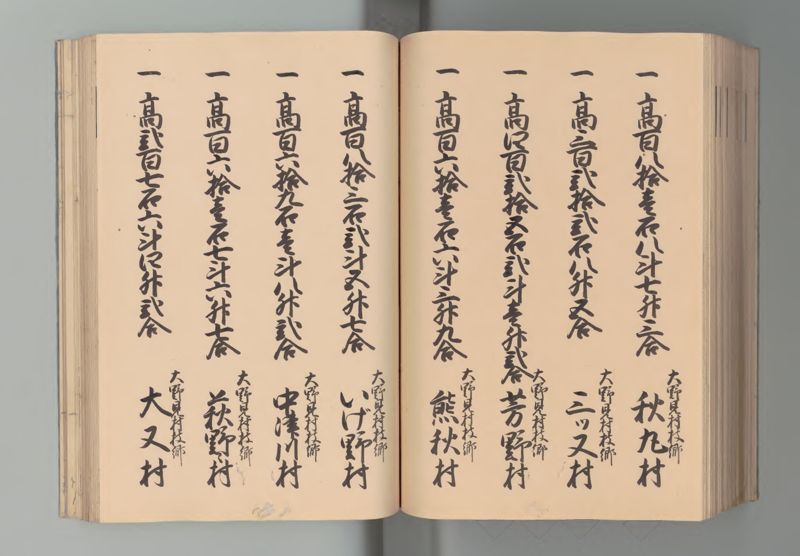 一高百八拾壱石八斗七升三合
大野見村枝郷
秋丸村
一高三百弐拾弐石八升五合
大野見村枝郷
三ツ又村
一高四百弐拾五石弐斗壱升弐合
大野見村枝郷
芳野村
一高百六拾壱石六斗三升九合
大野見村枝郷
熊秋村
一高百八拾三石弐斗五升七合
大野見村枝郷
いげ野村
一高百六拾九石壱斗八升弐合
大野見村枝郷
中津川村
一高百六拾壱石七斗六升七合
大野見村枝郷
萩野村
一高弐百七石六斗四升弐合
大野見村枝郷
大又村